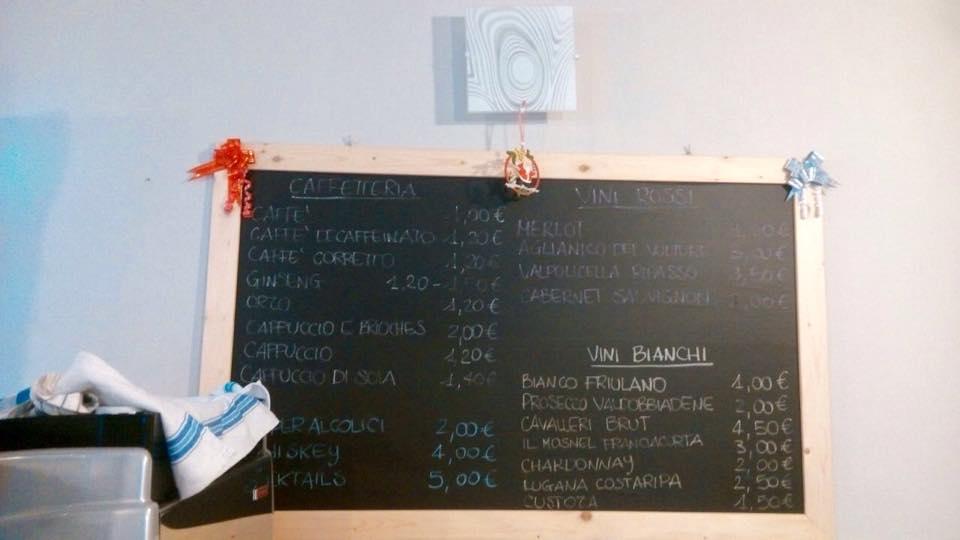 CAFFETTERIA
CAFFE' 1,00€
CAFFE' DECAFFEINATO 1,20€
CAFFE' CORRETTO 1,20€
GINSENG 1,20-1,50€
ORZO 1,20€
CAPPUCCIO E BRIOCHES 2,00€
CAPPUCCIO 1,20€
CAPPUCCIO DI SOIA 1,40€
ALCOLICI 2,00€
4,00€
5,00€
VINI ROSSI
MERLOT
AGLIANICO DEL VULTURE
VALPOLICELLA RIPASSO 3,50€
CABERNET SAUVIGNON
VINI BIANCHI
BIANCO FRIULANO 1,00€
PROSECCO VALDOBBIADENE 2,00€
CAVALLERI BRUT 4,50€
IL MOSNEL FRANCIACORTA 3,00€
CHARDONNAY 2,00€
LUGANA COSTARIPA 2,50€
CUSTOZA 1,50€